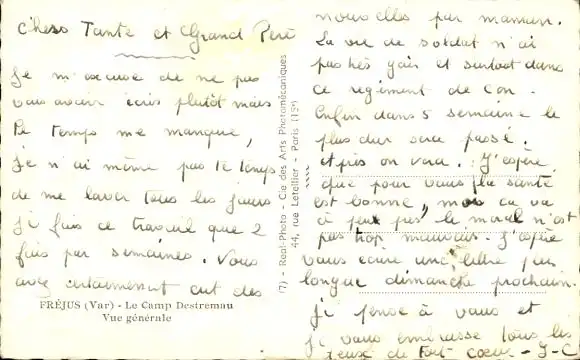 Chers Tante et Grand Père
Je m'excuse de ne pas
vous avoir écris plutôt mais
le temps me manque,
je n'ai même pas le temps
de me laver tous les jours
je fais ce travail que 2
fois par semaines. Vous
avez certainement eut des
FRÉJUS (Var) - Le Camp Destremau
Vue générale
7) - Real-Photo - Cie des Arts Photomécaniques
44, rue Letellier - Paris (15e)
nouvelles par maman.
La vie de soldat n'ai
pas très gais et surtout dans
ce régiment de con.
Enfin dans 5 semaine le
plus dur sera passé.
et après on verra. J'espère
que pour vous la santé
est bonne, moi ca va
à peu près, le moral n'est
pas trop mauvais. J'espère
vous écrire une lettre plus
longue dimanche prochain.
je pense à vous et
je vous embrasse tous les
deux de tout coeur - J-C